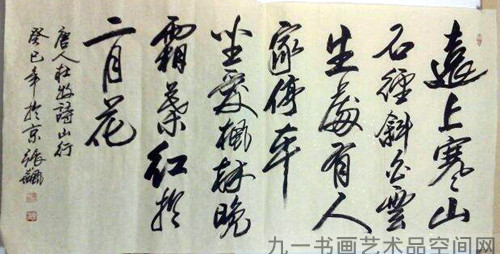 遠上寒山
石徑斜白雲
生處有人
家停車
坐愛楓林晚
霜葉红於
二月花
唐人杜牧詩山行
癸巳年於京張飆
九一书画艺术品空间网